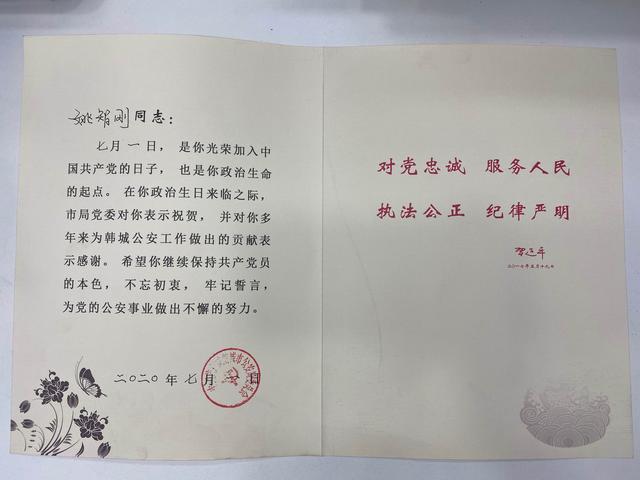 姚智刚同志：
七月一日，是你光荣加入中
国共产党的日子，也是你政治生命
的起点。在你政治生日来临之际，
市局党委对你表示祝贺，并对你多
年来为韩城公安工作做出的贡献表
示感谢。希望你继续保持共产党员
的本色，不忘初衷，牢记誓言，
为党的公安事业做出不懈的努力。
二〇二〇年七月一日
对党忠诚 服务人民
执法公正 纪律严明
二〇一七年五月十九日